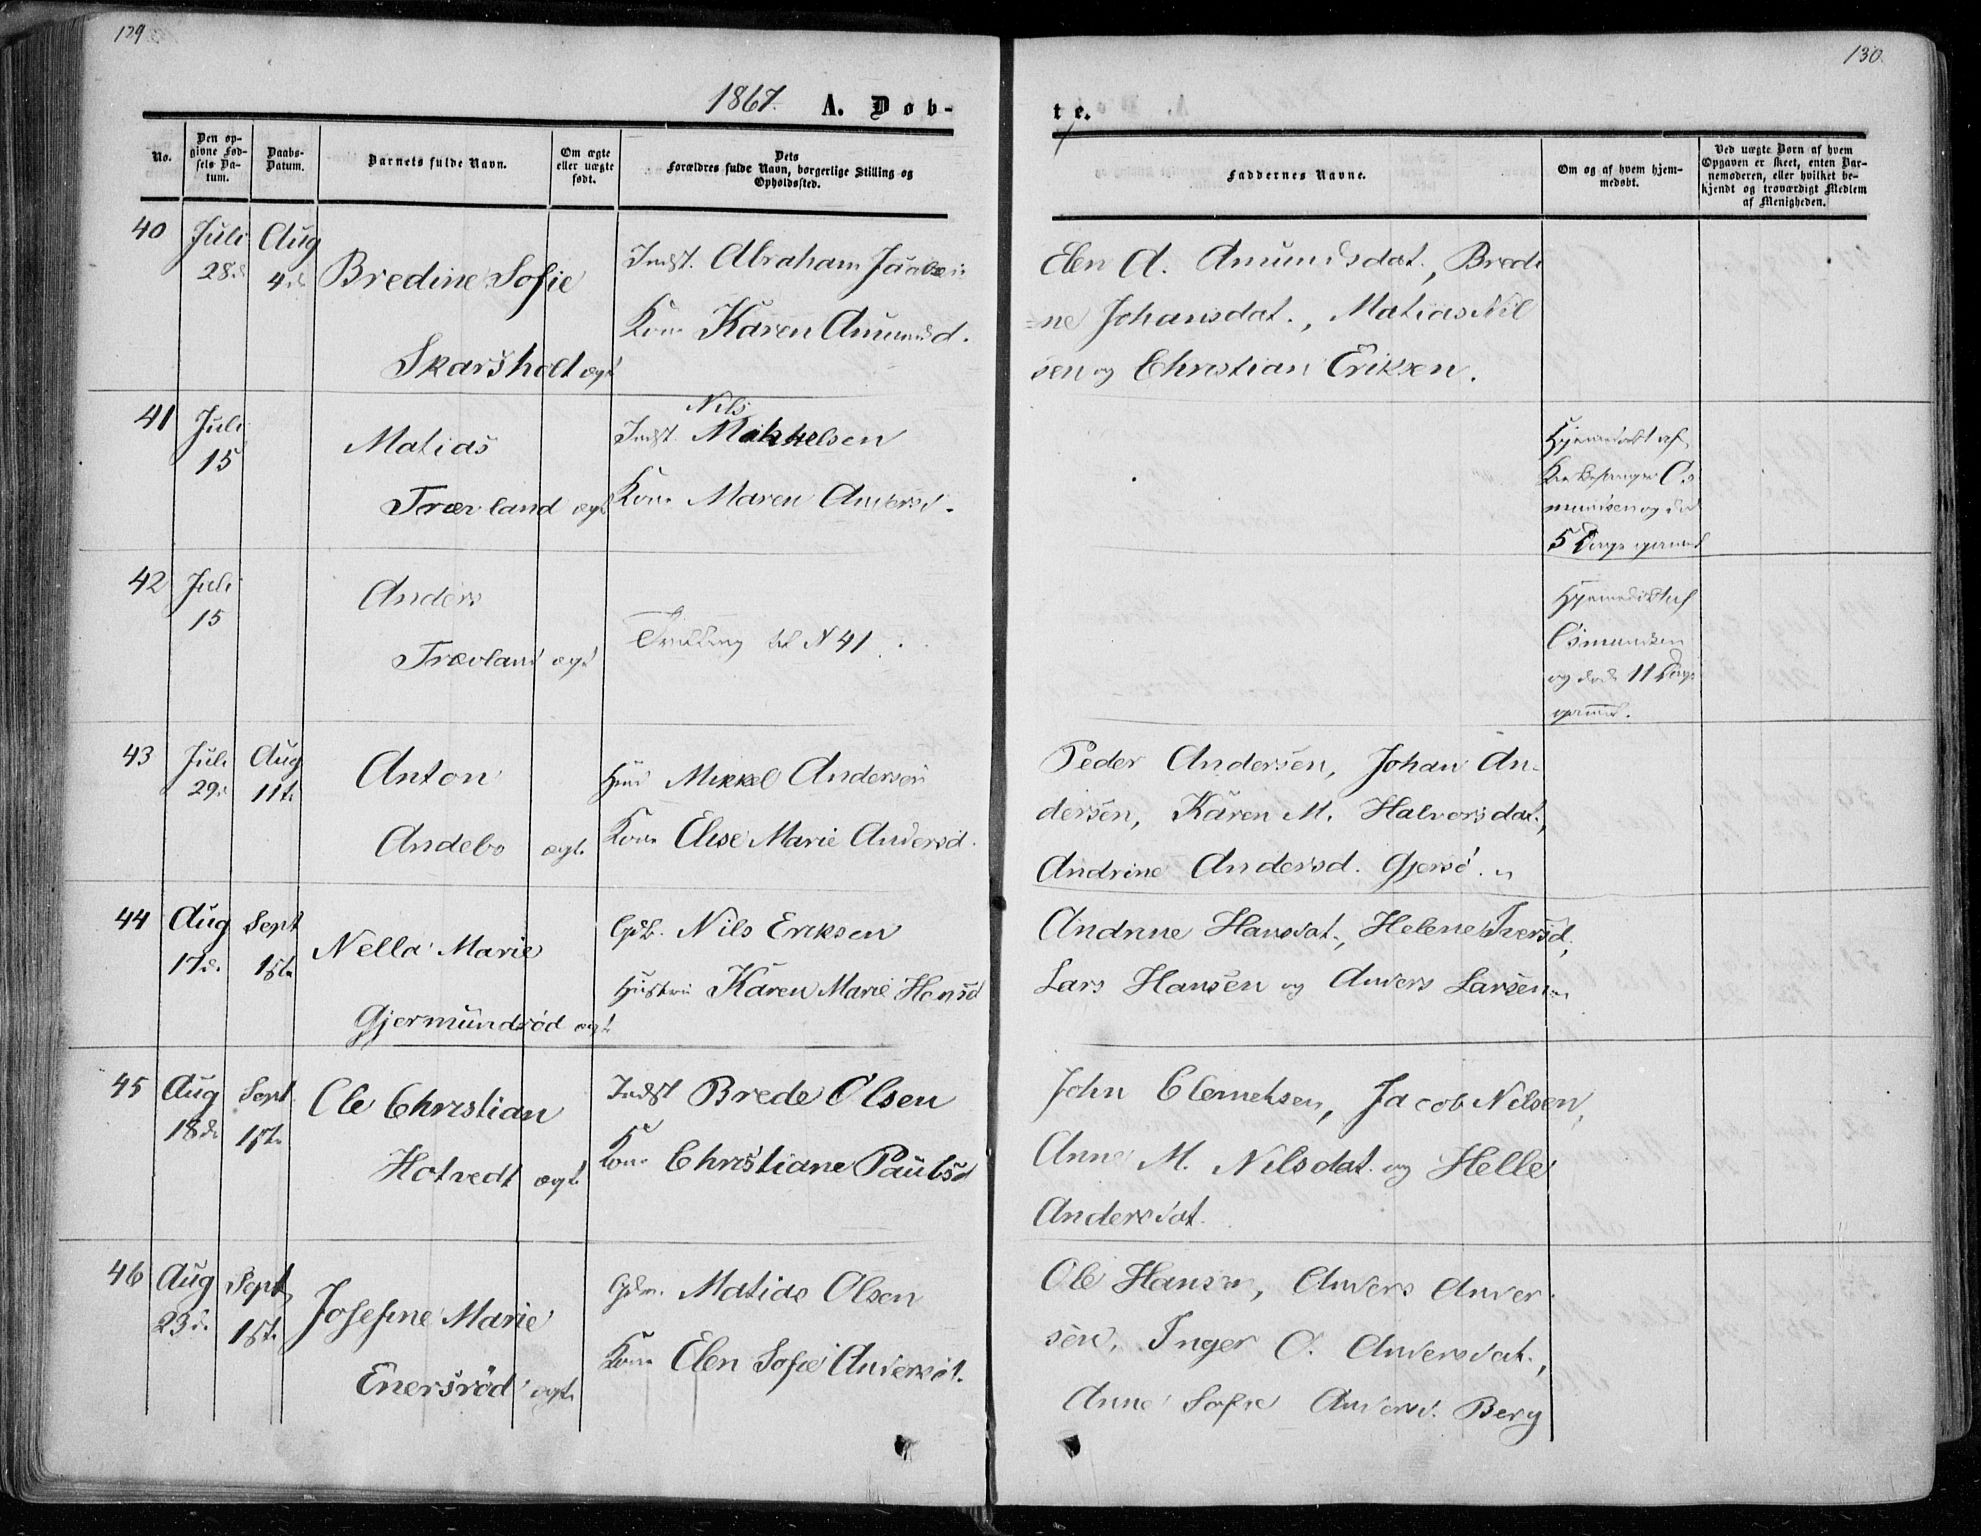 129
130.
1867. A. Døb-
te.
No.
Den op-
givne Fød-
sels Da-
tum.
Daabs-
Datum.
Barnets fulde Navn.
Om ægte
eller uægte
født.
Dets
Forældres fulde Navn, borgerlige Stilling og
Opholdssted.
Faddernes Navne.
Om og af hvem hjem-
medøbt.
Ved uægte Børn af hvem
Opgaven er skeet, enten Bar-
nemoderen, eller hvilket be-
kjendt og troværdigt Medlem
af Menigheden.
40
Juli
28de
Aug
4de
Bredine Sofie
Skarsholt ægt
Indst. Abraham
Kone Karen Amundsd.
Elen A. Amundsdat., Bredi
=ne Johansdat., Matias Nil
sen og Christian Eriksen.
41
Juli
15
Matias
Trævland ægt
Nils
Indst. Mikkelsen
Kone Maren Andersd.
Hjemmedøbt af
Kirkesanger Os
mundsen og død
5 Dage gammel
42
Juli
15
Anders
Trævland ægt
Tvilling til N 41.
Hjemmedøbt af
Osmundsen
og døde 11 Dage
gammel.
43
Juli
29de
Aug
11te
Anton
Andebo ægt.
Mikkel Andersen
Kone Elise Marie Andersd.
Peder Andersen, Johan An-
dersen, Karen M. Halvorsdat.,
Andrine Andersd. Gjersø.
44
Aug
17de
Sept
1ste
Nella Marie
Gjermundrød ægt
Gdb. Nils Eriksen
Hustru Karen Marie Hansd
Andrine Hansdat., Helene Iversd,
Lars Hansen og Anders Larsen
45
Aug
18de
Sept.
1ste
Ole Christian
Hotvedt ægt
Indst Brede Olsen
Kone Christiane Paulsd
John Clemetsen, Jacob Nilsen,
Anne M. Nilsdat. og Helle
Andersdat.
46
Aug
23de
Sept
1ste
Josefine Marie
Enersrød ægt
Gdm. Matias Olsen
Kone Elen Sofie Andersdt.
Ole Hansen, Anders Ander
sen, Inger O. Andersdat.,
Anne Sofie Andersd. Berg